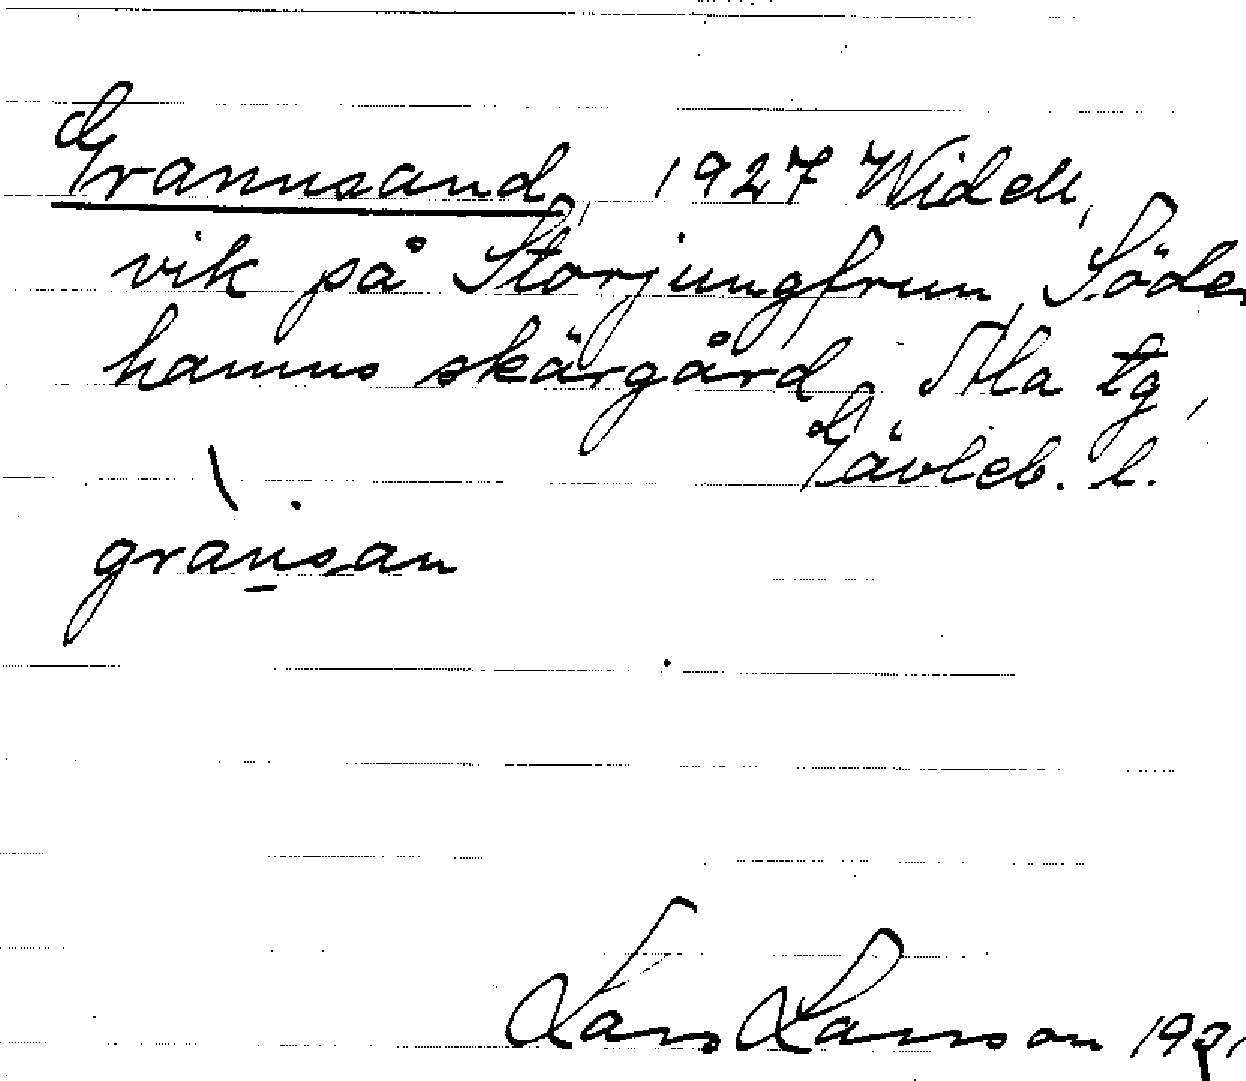 Grannsand, 1927 Widell,
vik på Storjungfrun, Söder
hamns skärgård, Ala tg,
Gävleb. l.
gränsan
Lars Larsson